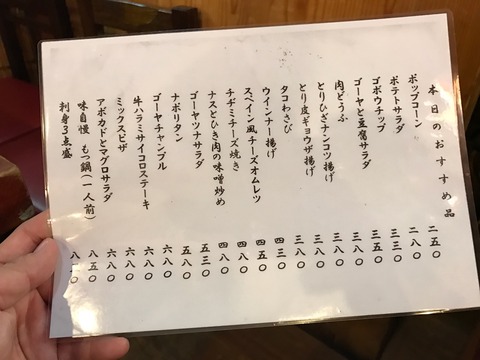 本日のおすすめ品
ポップコーン 二五〇
ポテトサラダ 二八〇
ゴボウチップ 三三〇
ゴーヤと豆腐サラダ 三五〇
肉どうふ 三三〇
とりひざナンコツ揚げ 三八〇
とり皮ギョウザ揚げ 三八〇
タコわさび 三八〇
ウインナー揚げ 四三〇
スペイン風チーズオムレツ 四五〇
チヂミチーズ焼き 四八〇
ナスとひき肉の味噌炒め 四八〇
ゴーヤツナサラダ 五三〇
ナポリタン 五八〇
ゴーヤチャンプル 六八〇
牛ハラミサイコロステーキ 六八〇
ミックスピザ 六八〇
アボカドとマグロサラダ 六八〇
味自慢 もつ鍋(一人前) 八五〇
刺身3点盛